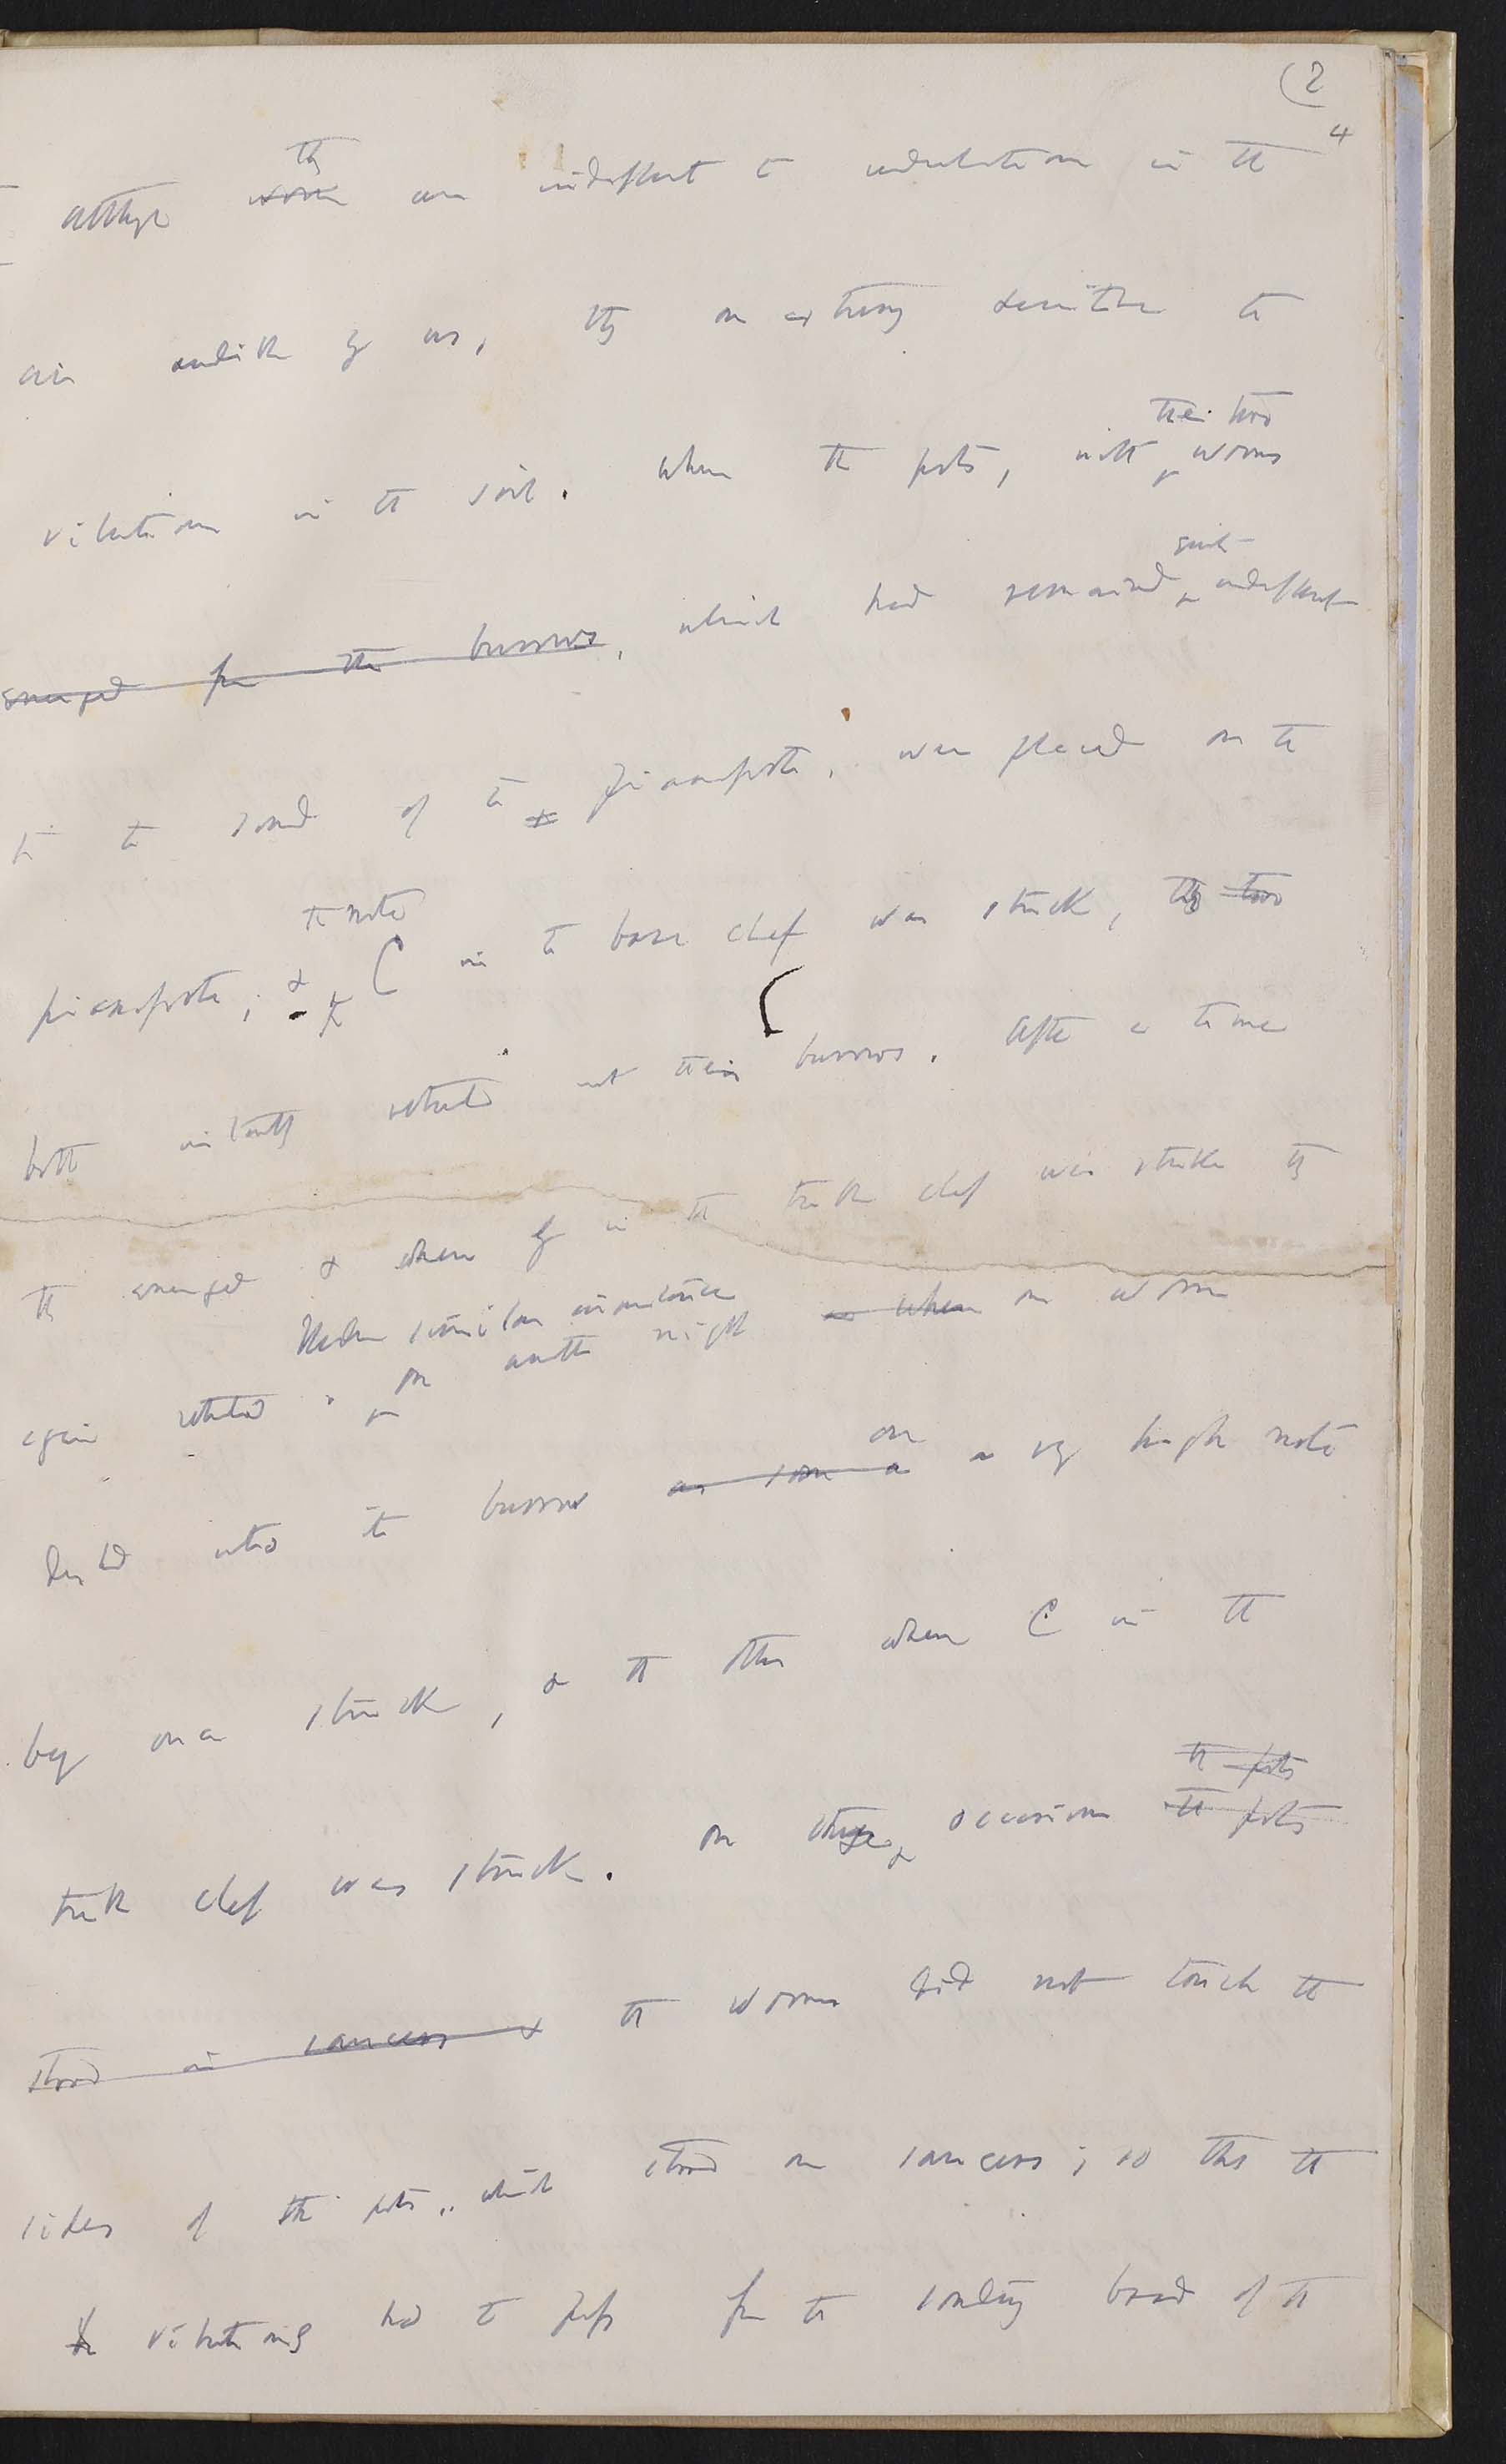 (2
4
they
although worms are indifferent to undulations in the
air audible by us, they are extremely sensitive to
their two
vibrations in the soil. When the pots, with worms
quite
emerged from their burrows, which had remained indifferent
to the sound of the pianoforte, were placed on the
the note
pianoforte, & C in the base clef was struck, they two
both instantly retreated into their burrows. After a time
they emerged & when G in the treble clef was struck they
Under similar circumstances
again retreated. on another night as when one worm
on
dashed into its burrow as soon as a very high note
being once struck, & the other when C in the
the pots
treble clef was struck. On these occasions the pots
stood in saucers & the worms did not touch the
sides of the pots, which stood on saucers; so that the
the vibrations had to pass from the sounding board of the